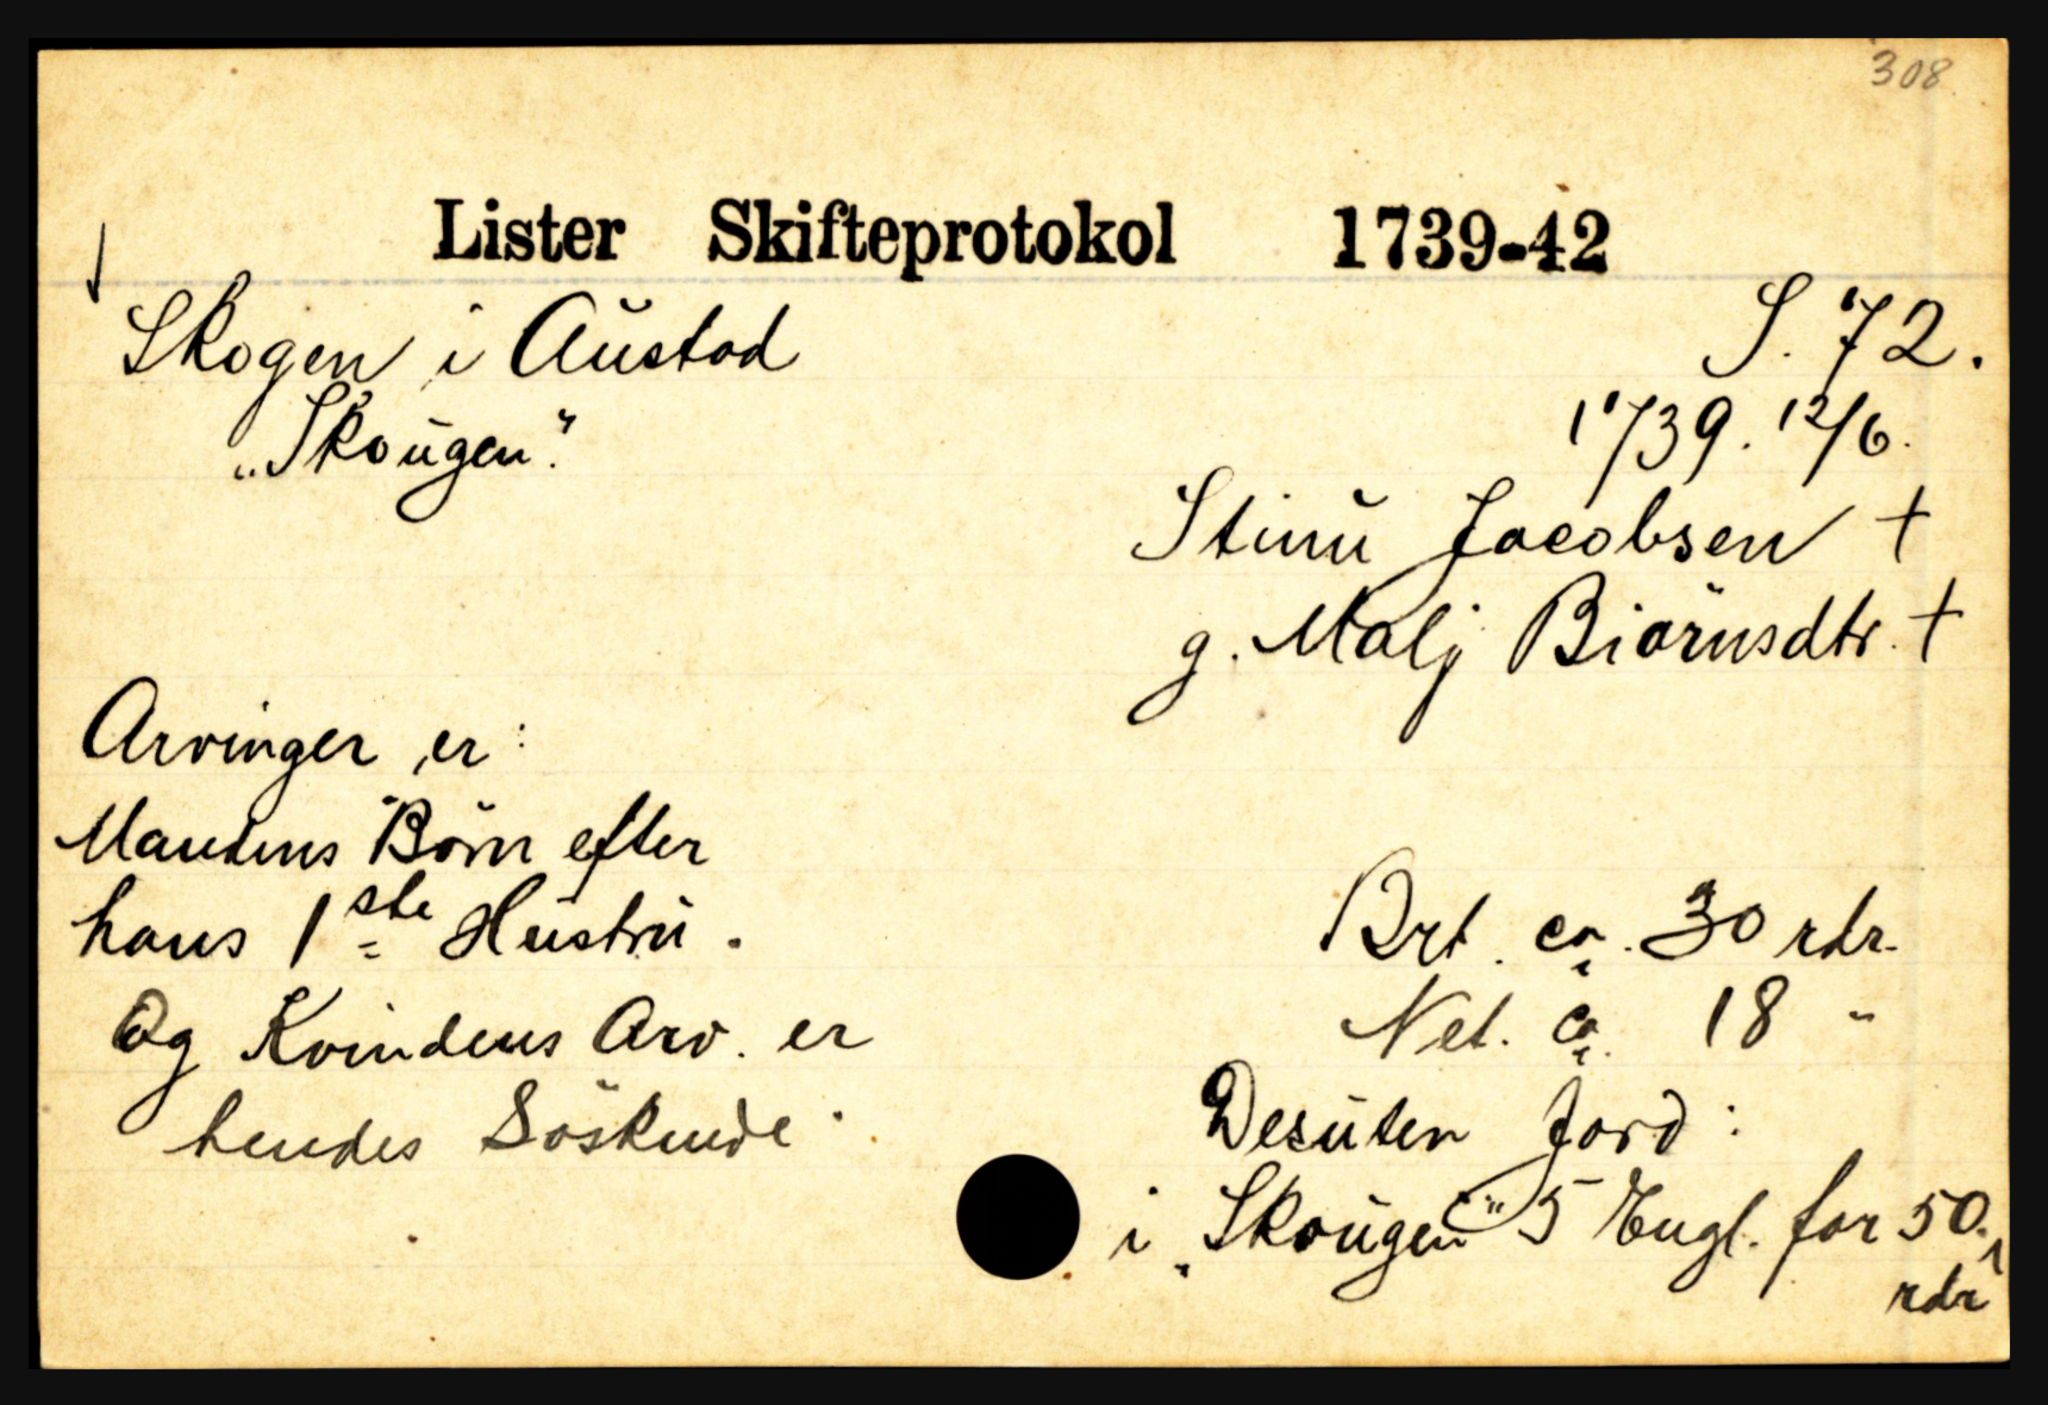 308
Lister Skifteprotokol 1739-42
Skogen i Austad
S. 72.
„Skougen."
1739. 12/6.
Stinu Jacobsen †
g. Malj Biörnsdtr. †
Arvinger er:
Mandens Börn efter
hans 1ste Hustru.
Og Kvindens Arv. er
hendes Söskende
Brt. ca. 30 rdr.
Net. ca. 18 "
Desuten Jord:
i „Skougen" 5 Engl. for 50.
rdr